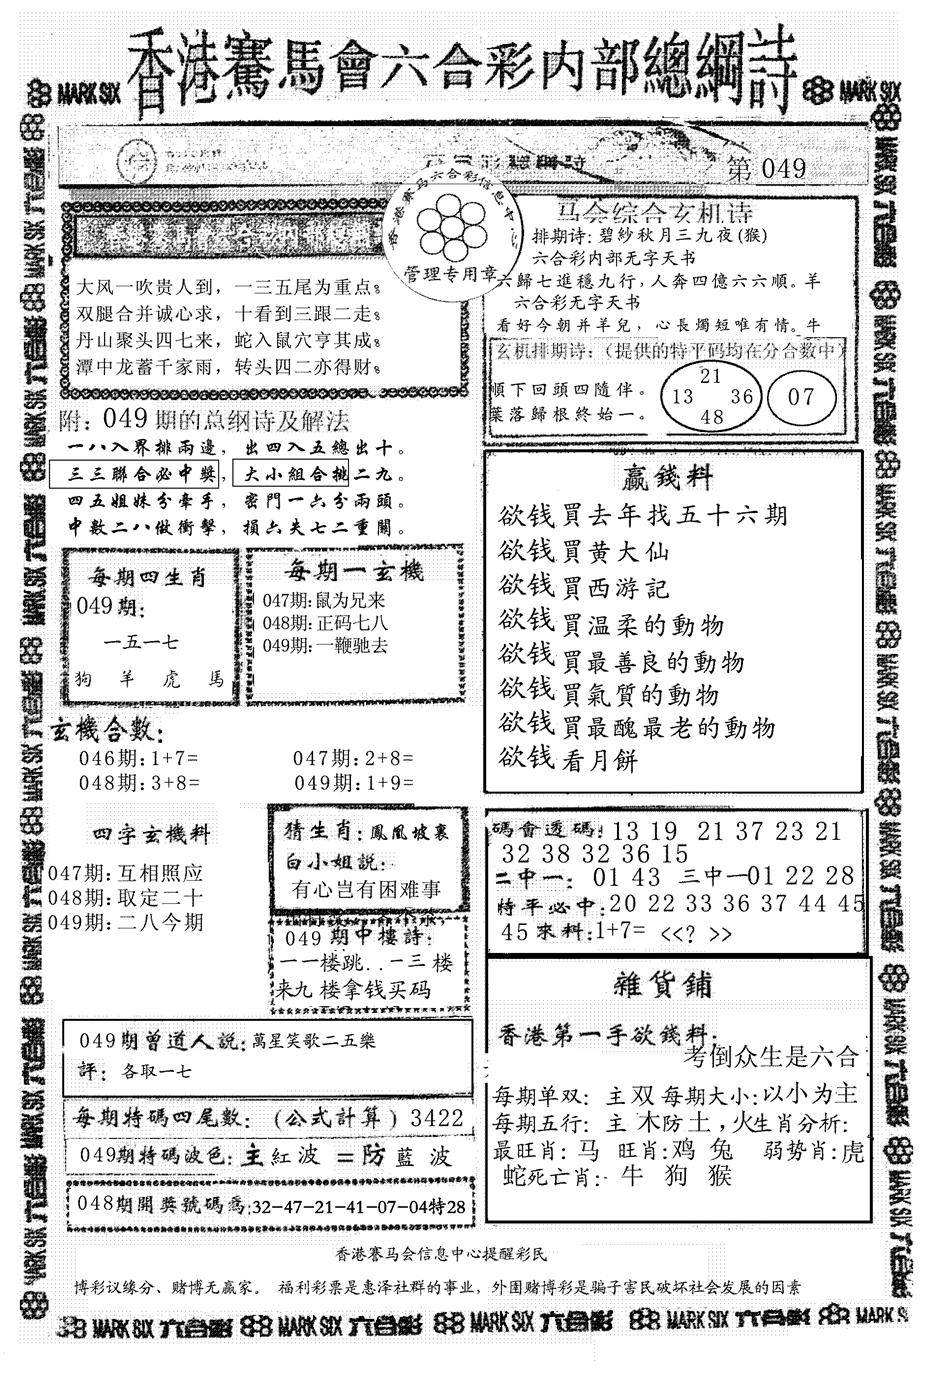 香港賽馬會六合彩内部總綱詩
MARK SIX
MARK SIX
第 049
香港赛马六合彩信息中心
管理专用章
大风一吹贵人到，一三五尾为重点。
双腿合并诚心求，十看到三跟二走。
丹山聚头四七来，蛇入鼠穴亨其成。
潭中龙蓄千家雨，转头四二亦得财。
马会综合玄机诗
排期诗: 碧紗秋月三九夜(猴)
六合彩内部无字天书
六歸七進穩九行，人奔四億六六順。羊
六合彩无字天书
看好今朝并羊兒，心長燭短唯有情。牛
玄机排期诗:（提供的特平码均在分合数中）
順下回頭四隨伴。
葉落歸根終始一。
21
13 36
48
07
附: 049期的总纲诗及解法
一八入界排兩邊，出四入五總出十。
三三聯合必中獎，大小組合挑二九。
四五姐妹分牽手，密門一六分兩頭。
中數二八做衝擊，損六失七二重關。
每期四生肖
049期:
一五一七
狗 羊 虎 馬
每期一玄機
047期:鼠为兄来
048期:正码七八
049期:一鞭驰去
赢錢料
欲钱買去年找五十六期
欲钱買黄大仙
欲钱買西游記
欲钱買温柔的動物
欲钱買最善良的動物
欲钱買氣質的動物
欲钱買最醜最老的動物
欲钱看月餅
玄機合數:
046期:1+7= 047期:2+8=
048期:3+8= 049期:1+9=
四字玄機料
047期:互相照应
048期:取定二十
049期:二八今期
猜生肖:鳳凰坡裏
白小姐説:
有心岂有困难事
049期中樓詩:
一一楼跳..一三楼
来九楼拿钱买码
碼會透碼:13 19 21 37 23 21
32 38 32 36 15
二中一: 01 43 三中一01 22 28
特平必中:20 22 33 36 37 44 45
45來料:1+7= <<? >>
雜貨鋪
香港第一手欲錢料:
考倒众生是六合
每期单双: 主双每期大小:以小为主
每期五行: 主木防土,火生肖分析:
最旺肖: 马 旺肖:鸡 兔 弱势肖:虎
蛇死亡肖: 牛 狗 猴
049期曾道人説:萬星笑歌二五樂
評: 各取一七
每期特碼四尾數: (公式計算) 3422
049期特碼波色:主紅波 =防藍波
048期開獎號碼爲:32-47-21-41-07-04特28
香港賽马会信息中心提醒彩民
博彩议缘分、赌博无赢家。 福利彩票是惠泽社群的事业，外围赌博彩是骗子害民破坏社会发展的因素
MARK SIX 六合彩 MARK SIX 六合彩 MARK SIX 六合彩 MARK SIX 六合彩 MARK SIX